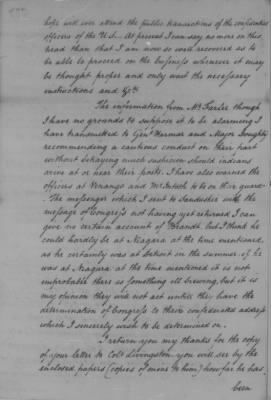 hope will ever attend the public transactions of the confidential
officers of the U.S. — At present I can say no more on this
head than that I am now so well recovered as to
be able to proceed on the business whenever it may
be thought proper and only wait the necessary
instructions and &ca.
The information from Mr. though
I have no grounds to suppose it to be alarming I
have transmitted to Genl Harmar and Major Doughty
recommending a cautious conduct on their part
without betraying much suspicion should indians
arrive at or near their posts. I have also warned the
officers at Venango and McIntosh to be on their guard.
The messenger which I sent to Sandusky with the
message of Congress not having yet returned I can
give no certain account of Brandt but I think he
could hardly be at Niagara at the time mentioned,
as he certainly was at Detroit in the summer, if he
was at Niagara at the time mentioned it is not
improbable there is something ill brewing, but it is
my opinion they will not act untill they have the
determination of Congress to their confederated address
which I sincerely wish to be determined on.
I return you my thanks for the copy
of your letter to Colo Livingston you will see by the
enclosed papers (copies of mine to him) how far he has
been